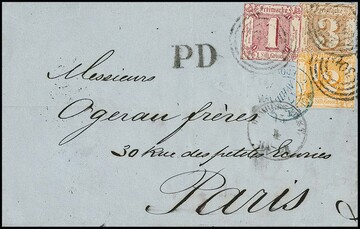 Freimarke
1
3
PD
Messieurs
Ogerau frères
30 Rue des petites Ecuries
Paris